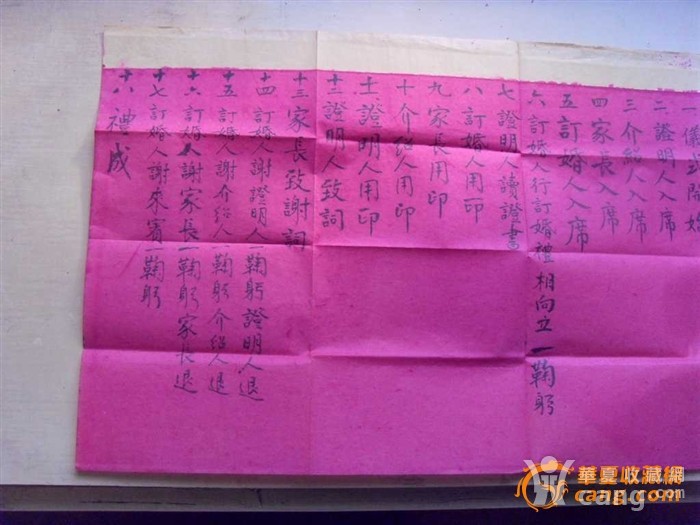 一儀式開始
二證明人入席
三介紹人入席
四家長入席
五訂婚人入席
六訂婚人行訂婚禮相向立一鞠躬
七證明人讀證書
八訂婚人用印
九家長用印
十介紹人用印
十一證明人用印
十二證明人致詞
十三家長致謝詞
十四訂婚人謝證明人一鞠躬證明人退
十五訂婚人謝介紹人一鞠躬介紹人退
十六訂婚人謝家長一鞠躬家長退
十七訂婚人謝來賓一鞠躬
十八禮成
華夏收藏網
cang.com